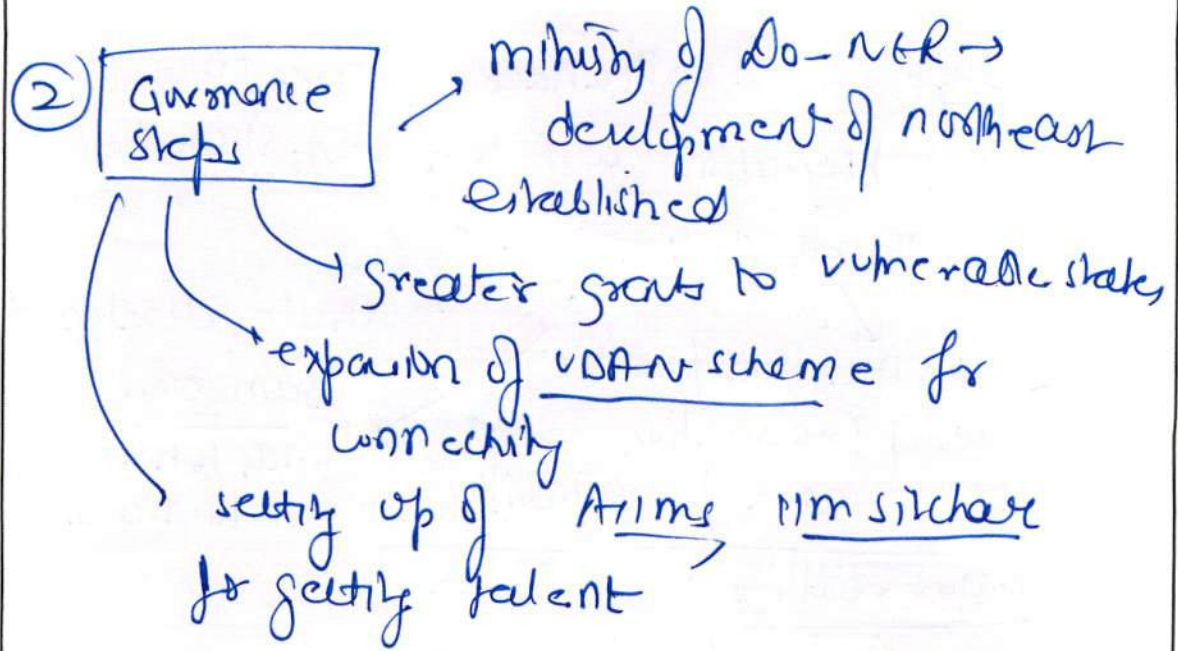 ② Governance steps
ministry of Do-NER →
development of northeast
established
greater grants to vulnerable states
expansion of UDAN scheme for
connectivity
setting up of AIIMS IIM silchar
for getting talent